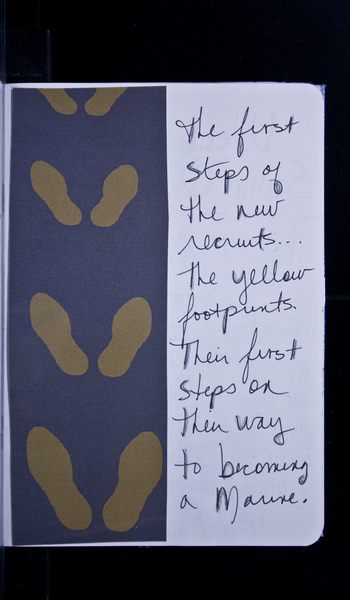 the first
steps of
the new
recruits...
the yellow
footprints.
Their first
steps on
their way
to becoming
a Marine.